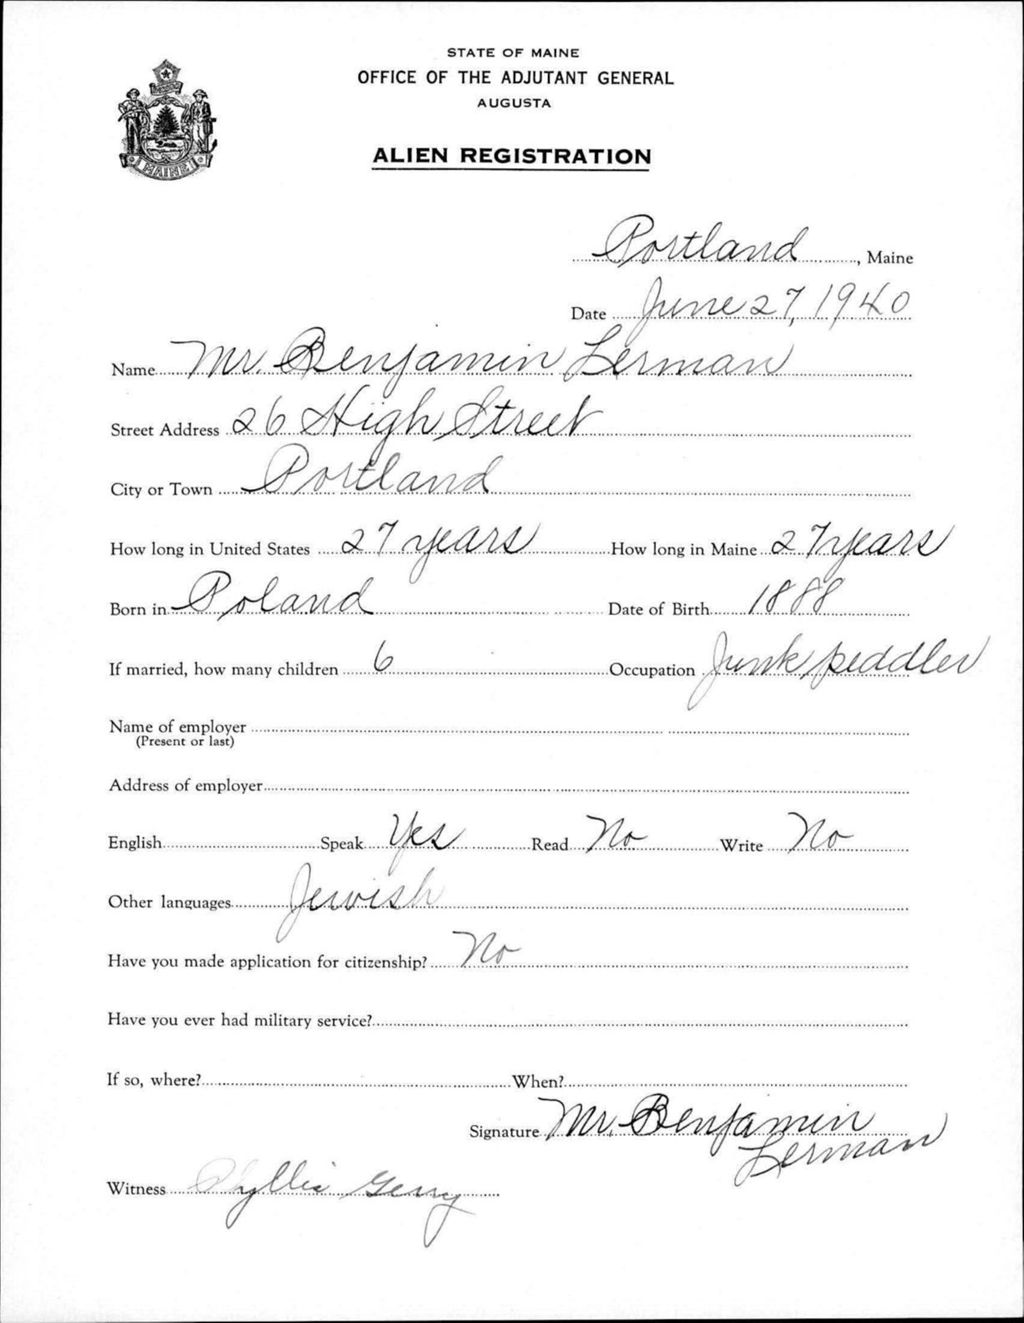 STATE OF MAINE
OFFICE OF THE ADJUTANT GENERAL
AUGUSTA
ALIEN REGISTRATION
MAINE
Portland, Maine
Date June 27, 1940
Name Mr. Benjamin Lerman
Street Address 26 High Street
City or Town Portland
How long in United States 27 years How long in Maine 27 years
Born in Poland Date of Birth 1888
If married, how many children 6 Occupation Junk peddler
Name of employer
(Present or last)
Address of employer
English Speak Yes Read No Write No
Other languages Jewish
Have you made application for citizenship? No
Have you ever had military service?
If so, where? When?
Signature Mr. Benjamin
Lerman
Witness Phyllis Gerry